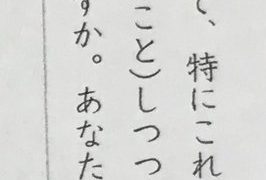 て、特にこれ
こと)しつつ
すか。あなた